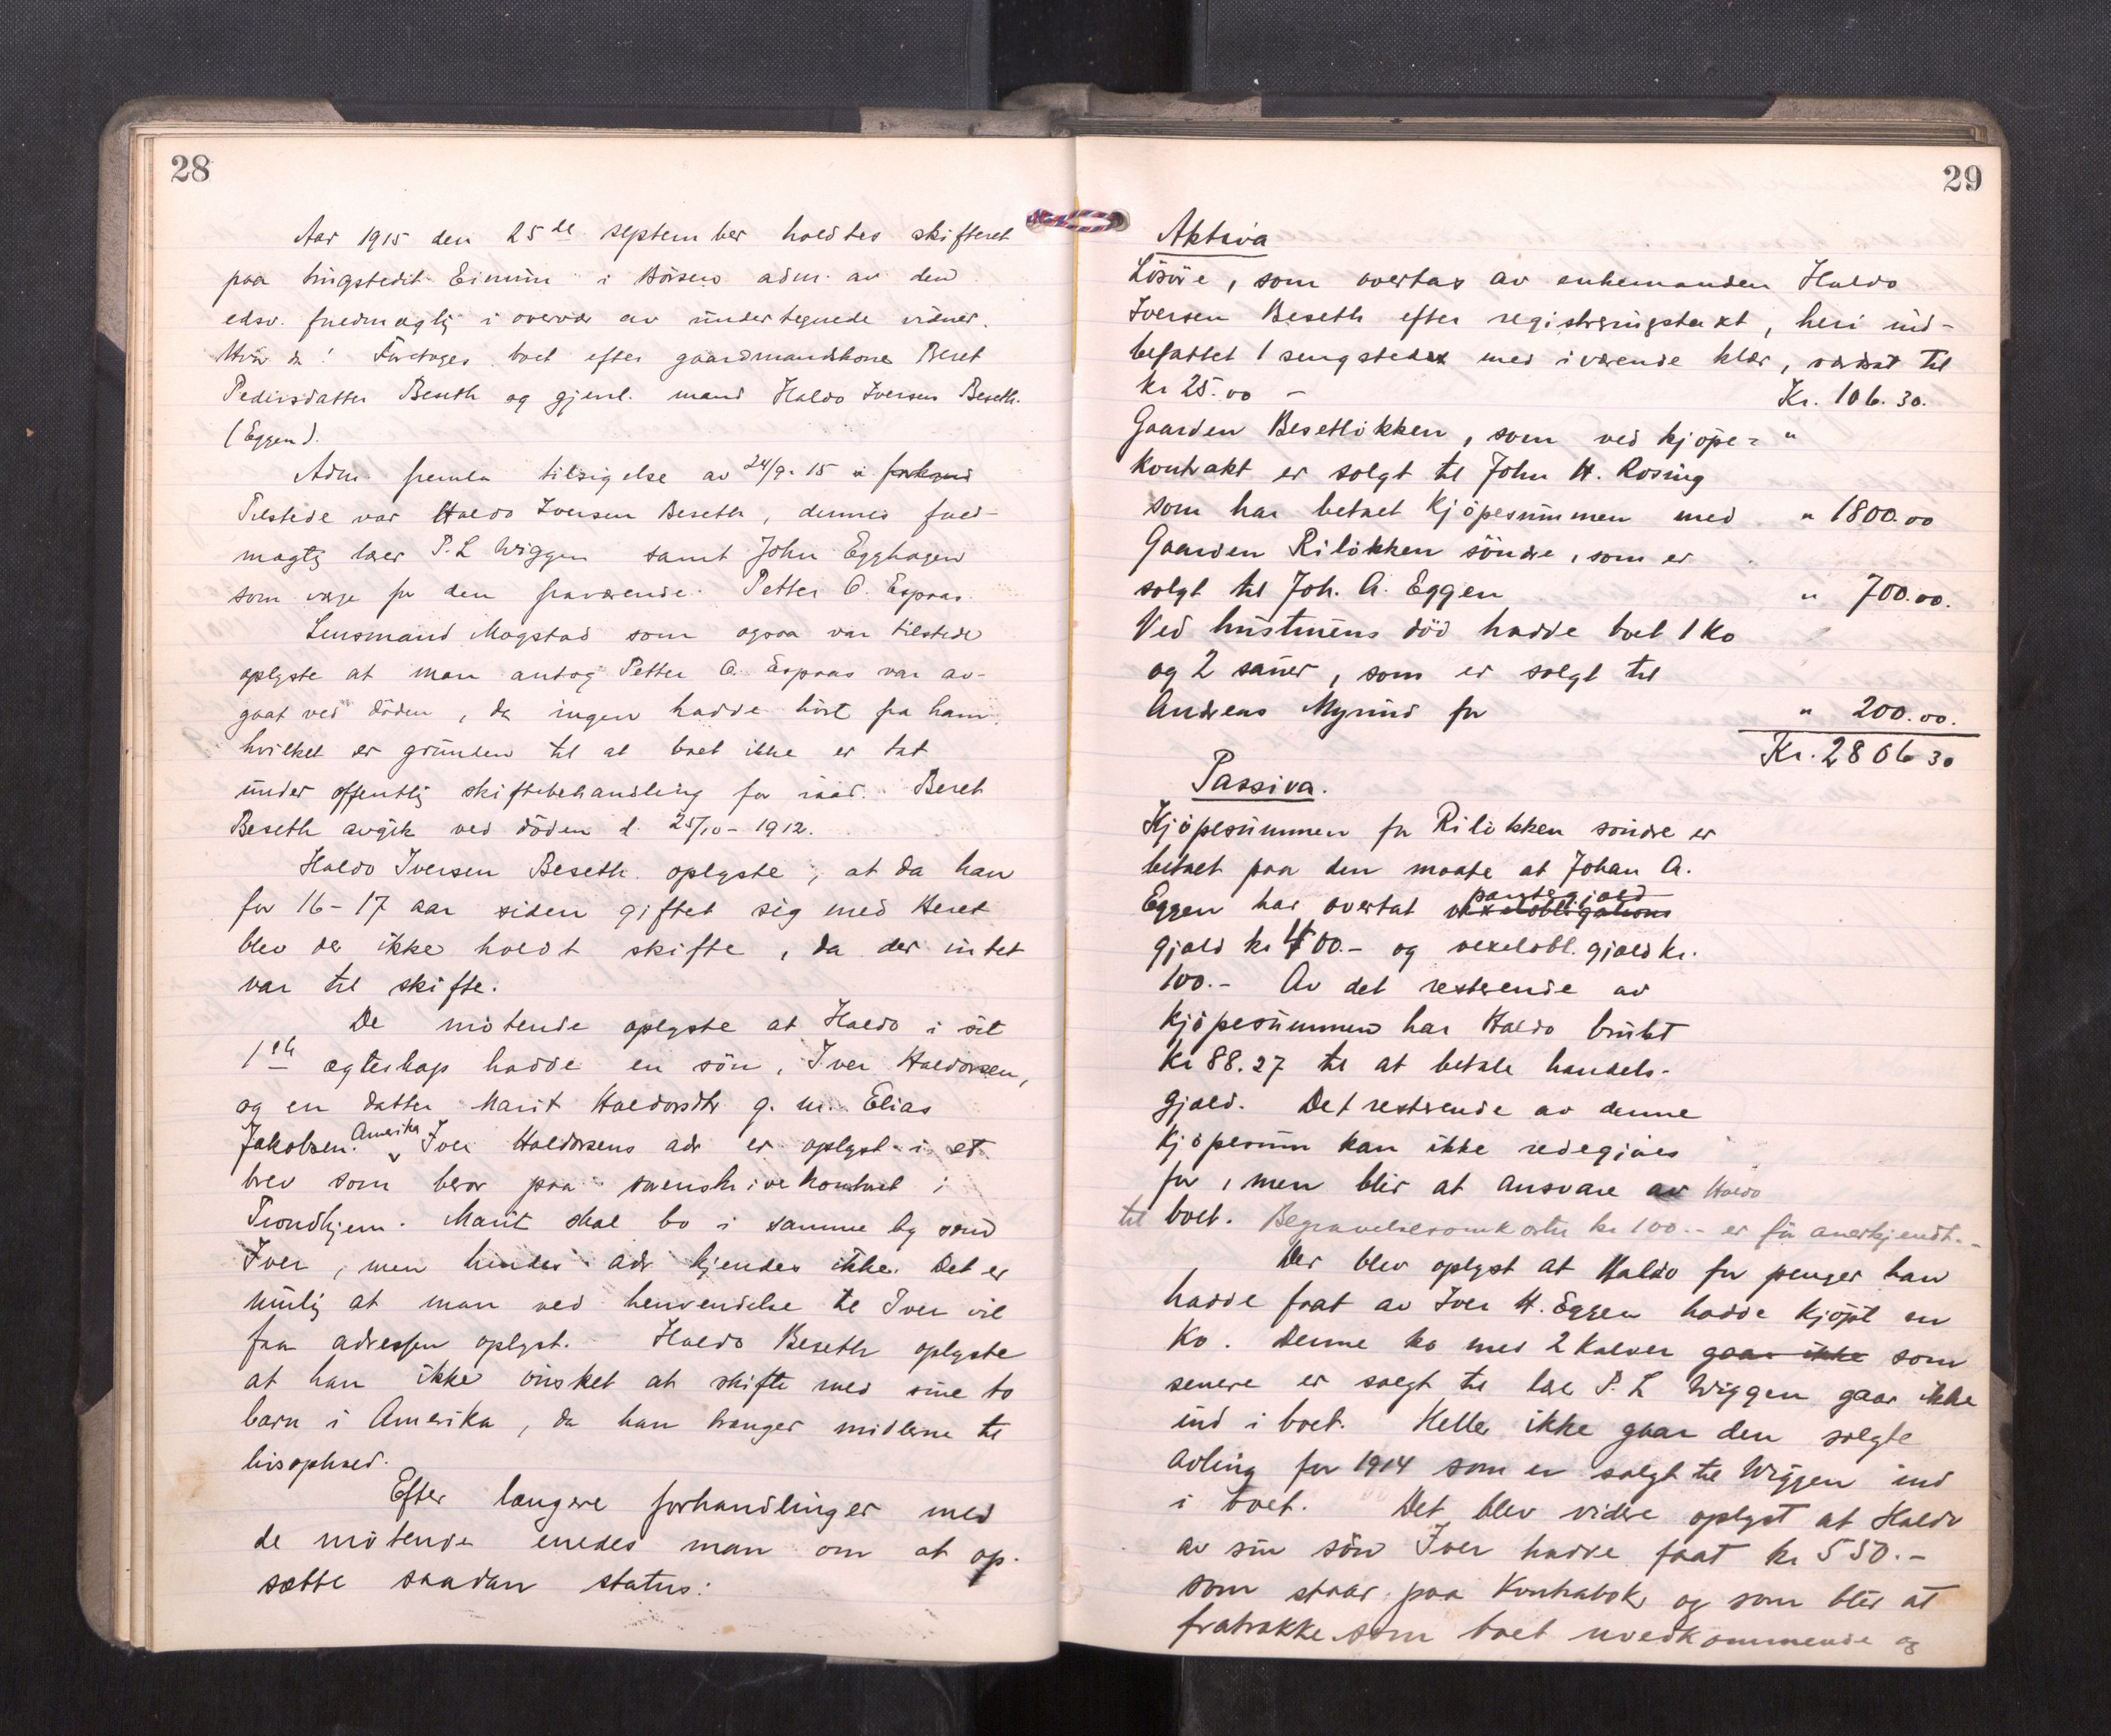 28
Aar 1915 den 25de september holdtes skifteret
paa tingstedet Eimun i Börsen adm. av den
edsv. fuldmægtig i overvær av undertegnede vidner.
Hvor da: Foretoges boet efter gaardmandskone Beret
Pedersdatter Beseth og gjenl. mand Haldo Iversen Beseth.
(Eggen).
Adm. fremla tilsigelse av 24/9-15 i forkynd
Tilstede var Haldo Iversen Beseth, dennes fuld-
mægtig lærer P. L Wiggen samt John Egghagen
som verge for den fraværende Petter O. Espaas.
Lensmand Mogstad som ogsaa var tilstede
oplyste at man antog Petter O. Espaas var av-
gaat ved döden, da ingen hadde hört fra ham,
hvilket er grunden til at boet ikke er tat
under offentlig skiftebehandling för iaar. Beret
Beseth avgik ved döden d. 25/10-1912.
Haldo Iversen Beseth oplyste, at da han
for 16-17 aar siden giftet sig med Beret
blev der ikke holdt skifte, da der intet
var til skifte.
De mötende oplyste at Haldo i sit
1ste egteskap hadde en sön, Iver Haldorsen,
og en datter Marit Haldorsdtr g. m. Elias
Jakobsen. Amerika Iver Haldorsens adr er oplyst i et
brev som beror paa sorenskriverkontoret i
Trondhjem. Marit skal bo i samme by som
Iver, men hendes adr kjendes ikke. Det er
mulig at man ved henvendelse til Iver vil
faa adressen oplyst. - Haldo Beseth oplyste
at han ikke önsket at skifte med sine to
barn i Amerika, da han trænger midlerne til
livsophold.
Efter længere forhandlinger med
de mötende enedes man om at op-
sætte saadan status:
29
Aktiva
Lösöre, som overtas av enkemanden Haldo
Iversen Beseth efter registreringstakt, heri ind-
befattet 1 sengsted med iværende klær, værdsat til
kr 25.00 - Kr. 106.30.
Gaarden Besetlökken, som ved kjöpe= "
kontrakt er solgt til John H. Rosing
som har betalt kjöpesummen med " 1800.00
Gaarden Rilökken söndre, som er
solgt til Joh. A. Eggen " 700.00.
Ved hustruens död hadde boet 1 ko
og 2 sauer, som er solgt til
Andreas Myrund for " 200.00.
Kr. 2806 30
Passiva.
Kjöpesummen for Rilökken söndre er
betalt paa den maate at Johan A.
Eggen har overtat vexelobligations pantegjæld
gjæld kr 400.- og vexelobl. gjæld kr.
100.- Av det resterende av
kjöpesummen har Haldo brukt
kr 88.27 til at betale handels-
gjæld. Det resterende av denne
kjöpesum kan ikke redegjöres
for, men blir at ansvare av Haldo
til boet. Begravelsesomkostn kr 100.- er før anerkjendt. -
Der blev oplyst at Haldo for penger han
hadde faat av Iver H. Eggen hadde kjöpt en
ko. Denne ko med 2 kalver gaar ikke som
senere er solgt til lær P. L Wiggen gaar ikke
ind i boet. Heller ikke gaar den solgte
avling for 1914 som er solgt til Wiggen ind
i boet. Det blev videre oplyst at Haldo
av sin sön Iver hadde faat kr 550.-
som staar paa kontrabok og som blir at
fratrække som boet uvedkommende og